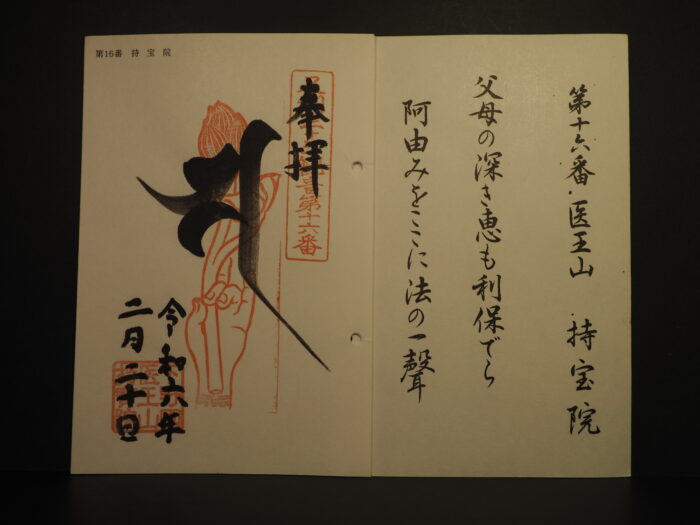 第十六番 医王山 持宝院
父母の深き恵も利保でら
阿由みをここに法の一聲
第16番 持宝院
奉拝
第十六番
令和六年
二月二十日